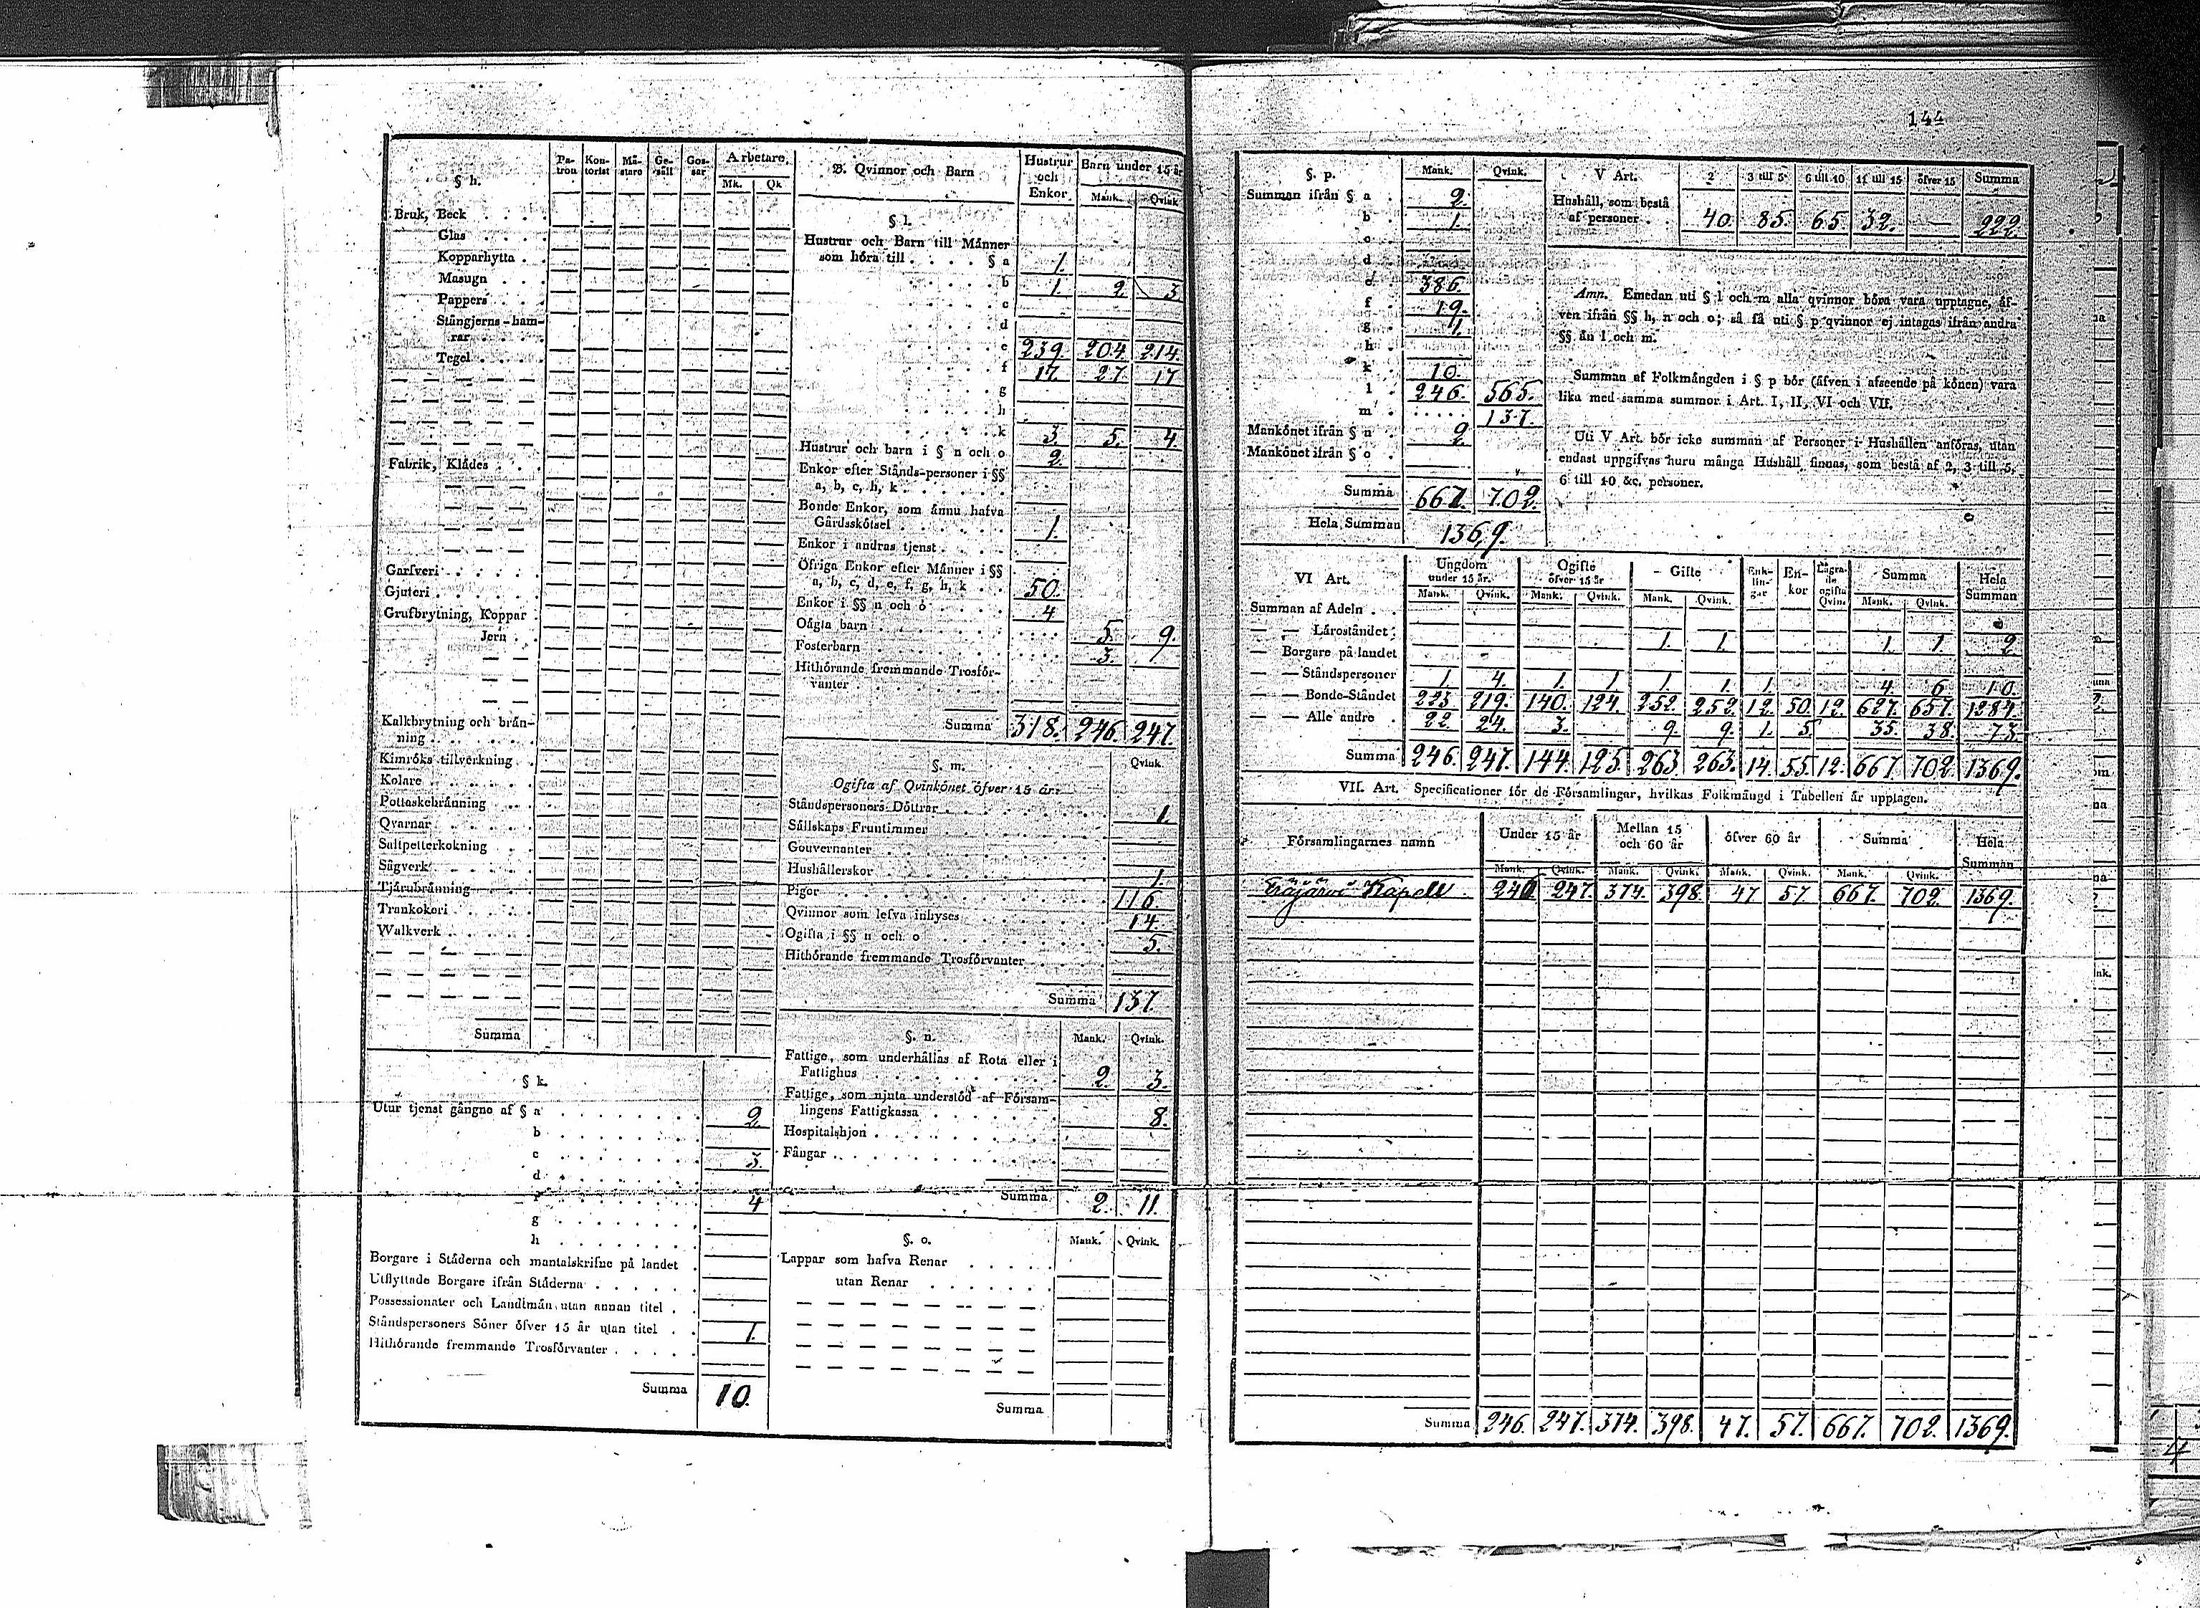 144
§ h.
Pa-tron Kon-torist Mä-stare Ge-säll Gos-sar Arbetare.
Mk. Qk
Bruk, Beck
Glas
Kopparhytta
Masugn
Pappers
Stångjerns-ham-
rar
Tegel
Fabrik, Klådes
Garfveri
Gjuteri
Grufbrytning, Koppar
Jern
Kalkbrytning och brån-
ning
Kimröks tillverkning
Kolare
Pottaskebränning
Qvarnar
Saltpetterkokning
Sågverk
Tjärubränning
Trankokeri
Walkverk
Summa
§ k.
Utur tjenst gångne af § a 2.
b
c 3.
d
f 4
g
h
Borgare i Städerna och mantalskrifne på landet
Utflyttade Borgare ifrån Städerna
Possessionater och Landtmän utan annan titel
Ståndspersoners Söner öfver 15 år utan titel 1.
Hithörande fremmande Trosförvanter
Summa 10.
B. Qvinnor och Barn
Hustrur och Enkor Barn under 15 år
Mank. Qvink
§ l.
Hustrur och Barn till Männer
som höra till § a 1.
b 1. 2 3.
c
d
e 239. 204. 214.
f 17. 27. 17
g
h
k 3. 5. 4
Hustrur och barn i § n och o 2.
Enkor efter Stånds-personer i §§
a, b, c, h, k
Bonde Enkor, som ännu hafva
Gårdsskötsel 1.
Enkor i andras tjenst
Öfriga Enkor efter Männer i §§
a, b, c, d, e, f, g, h, k 50.
Enkor i §§ n och o 4
Oägta barn 5. 9.
Fosterbarn 3.
Hithörande fremmande Trosför-
vanter
Summa 318. 246. 247.
§. m. Qvink
Ogifta af Qvinkönet öfver 15 år:
Ståndspersoners Döttrar 1.
Sällskaps Fruntimmer
Gouvernanter
Hushållerskor 1.
Pigor 116.
Qvinnor som lefva inhyses 14.
Ogifta i §§ n och o 5.
Hithörande fremmande Trosförvanter
Summa 137.
§. n. Mank. Qvink.
Fattige, som underhållas af Rota eller i
Fattighus 2. 3.
Fattige, som njuta understöd af Försam-
lingens Fattigkassa 8.
Hospitalshjon
Fångar
Summa 2. 11.
§. o. Mank. Qvink.
Lappar som hafva Renar
utan Renar
Summa
§. p. Mank. Qvink.
Summan ifrån § a 2.
b 1.
c
d
e 386.
f 19.
g 1.
h
k 10.
l 246. 565.
m 137.
Mankönet ifrån § n 2.
Mankönet ifrån § o
Summa 667. 702.
Hela Summan 1369.
V Art. 2 3 till 5 6 till 10 11 till 15 öfver 15 Summa
Hushåll, som bestå
af personer 40. 85. 65. 32. — 222.
Anm. Emedan uti § l och m alla qvinnor böra vara upptagne, äf-
ven ifrån §§ h, n och o; så få uti § p qvinnor ej intagas ifrån andra
§§ än l och m.
Summan af Folkmängden i § p bör (äfven i afseende på könen) vara
lika med samma summor i Art. I, II, VI och VII.
Uti V Art. bör icke summan af Personer i Hushållen anföras, utan
endast uppgifvas huru många Hushåll finnas, som bestå af 2, 3 till 5,
6 till 10 &c. personer.
VI Art. Ungdom under 15 år. Ogifte öfver 15 år Gifte Enk-lin-gar En-kor Lägra-de ogifta Qvin: Summa Hela Summan
Mank. Qvink. Mank. Qvink. Mank. Qvink. Mank. Qvink.
Summan af Adeln
— — Läroståndet 1. 1. 1. 1. 2
— Borgare på landet
— — Ståndspersoner 1. 4. 1. 1. 1. 1. 1. 4. 6. 10.
— — Bonde-Ståndet 223 219. 140. 124. 252. 252. 12. 50. 12. 627. 657. 1284.
— — Alle andre 22 24. 3. 9. 9. 1. 5. 35. 38. 73.
Summa 246. 247. 144. 125. 263. 263. 14. 55. 12. 667. 702. 1369.
VII. Art. Specificationer för de Församlingar, hvilkas Folkmängd i Tabellen är upptagen.
Församlingarnes namn Under 15 år Mellan 15 och 60 år öfver 60 år Summa Hela Summan
Mank. Qvink. Mank. Qvink. Mank. Qvink. Mank. Qvink.
Eräjärvi Kapell 246 247. 374. 398. 47 57. 667. 702. 1369.
Summa 246. 247. 374. 398. 47. 57. 667. 702. 1369.